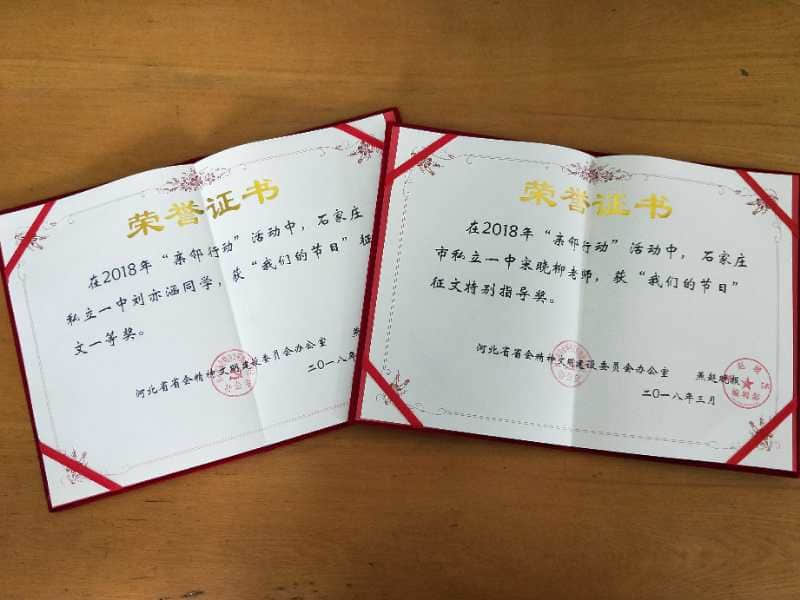 荣誉证书
在2018年“亲邻行动”活动中，石家庄
私立一中刘亦涵同学，获“我们的节日”征
文一等奖。
河北省省会精神文明建设委员会办公室 燕
二〇一八年
荣誉证书
在2018年“亲邻行动”活动中，石家庄
市私立一中宋晓柳老师，获“我们的节日”
征文特别指导奖。
河北省省会精神文明建设委员会办公室 燕赵晚报
二〇一八年三月
编辑部